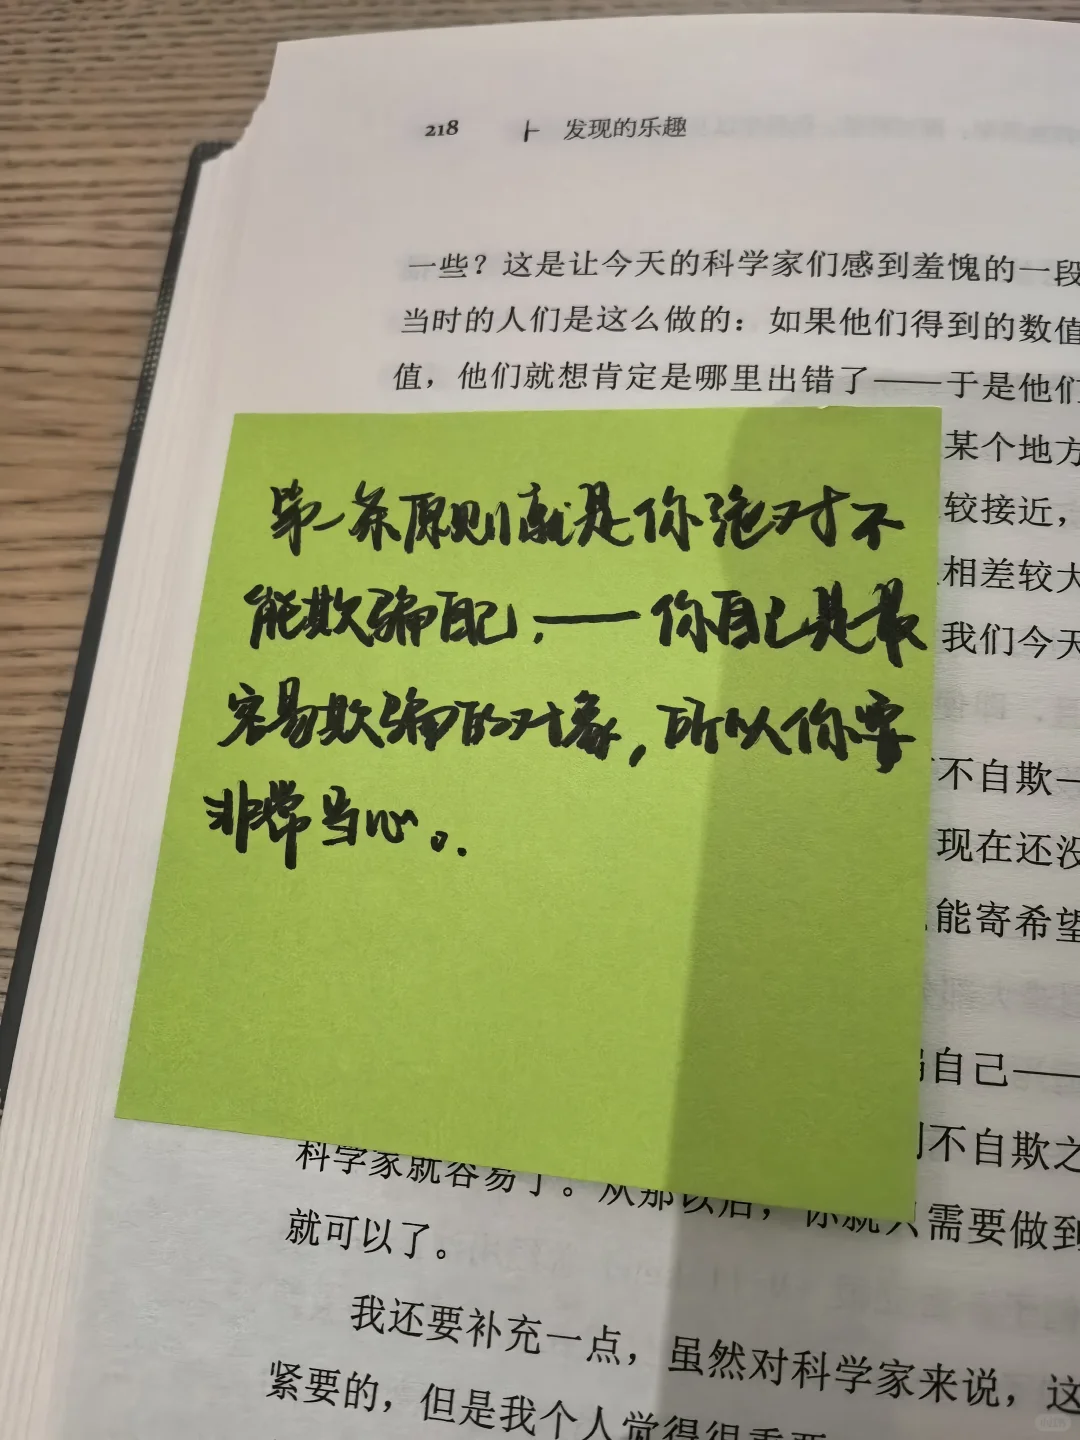 218 ⊢ 发现的乐趣
一些？这是让今天的科学家们感到羞愧的一段
当时的人们是这么做的：如果他们得到的数值
值，他们就想肯定是哪里出错了——于是他们
某个地方
较接近，
相差较大
我们今天
第一条原则就是你绝对不
能欺骗自己，——你自己是最
容易欺骗的对象，所以你要
非常当心。
不自欺一
现在还没
能寄希望
自己——
不自欺之
科学家就容易了。从那以后，你就只需要做到
就可以了。
我还要补充一点，虽然对科学家来说，这
紧要的，但是我个人觉得很重要